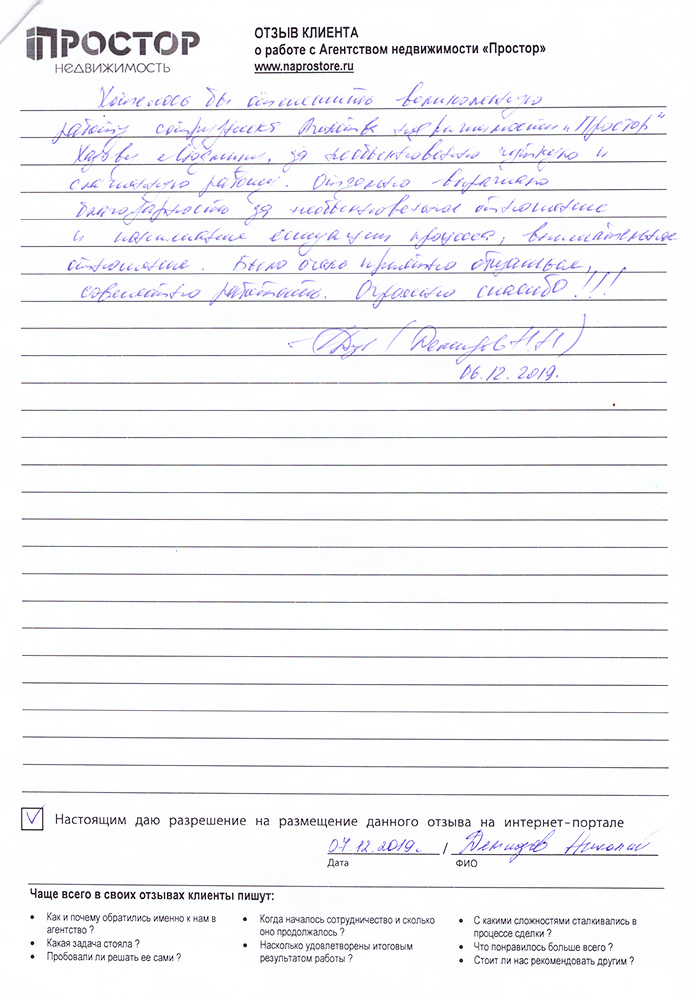 ПРОСТОР
НЕДВИЖИМОСТЬ
ОТЗЫВ КЛИЕНТА
о работе с Агентством недвижимости «Простор»
www.naprostore.ru
Хотелось бы отметить великолепную
работу Агентства недвижимости "Простор"
за необыкновенно чёткую и
слаженную работу. Отдельно выражаю
благодарность за необыкновенное отношение
и понимание процесса, внимательное
отношение. Было очень приятно общаться,
совместно работать. Огромное спасибо!!!
(Демидов Н.Н)
06.12.2019.
Настоящим даю разрешение на размещение данного отзыва на интернет-портале
07.12.2019г. / Демидов Николай
Дата ФИО
Чаще всего в своих отзывах клиенты пишут:
• Как и почему обратились именно к нам в
агентство ?
• Какая задача стояла ?
• Пробовали ли решать ее сами ?
• Когда началось сотрудничество и сколько
оно продолжалось ?
• Насколько удовлетворены итоговым
результатом работы ?
• С какими сложностями сталкивались в
процессе сделки ?
• Что понравилось больше всего ?
• Стоит ли нас рекомендовать другим ?